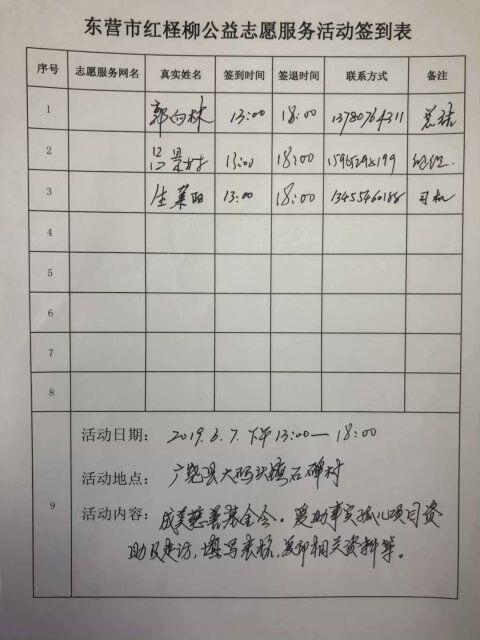 东营市红柽柳公益志愿服务活动签到表
序号 志愿服务网名 真实姓名 签到时间 签退时间 联系方式 备注
1 郭向林 13:00 18:00 13780764311
2 13:00 18:00
3 13:00 18:00 司机
4
5
6
7
8
9
活动日期: 2019.6.7.下午13:00—18:00
活动地点: 广饶县大码头镇石碑村
活动内容: 成美慈善基金会。爱助事实孤儿项目资
助及走访,填写表格,复印相关资料等。